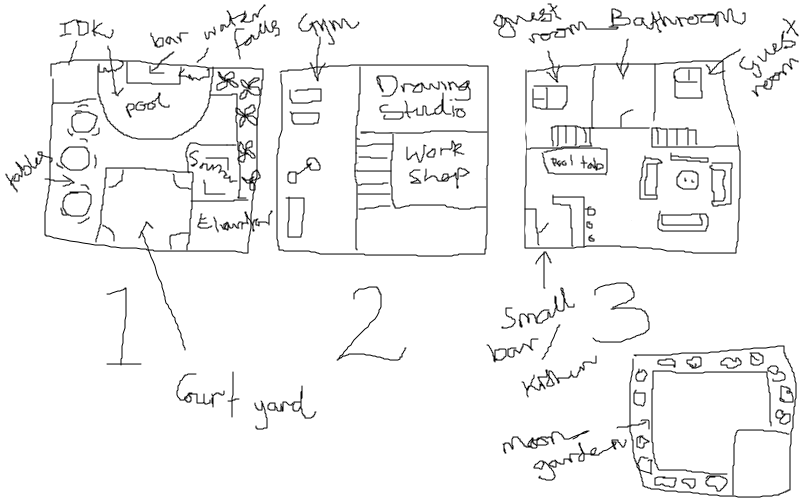 IDK
bar
water
falls
pool
tables
Sauna
Elevator
Court yard
1
Gym
Drawing
Studio
Work
Shop
2
guest
room
Bathroom
Guest
room
Pool tab
Small
bar
Kitchen
3
moon
garden